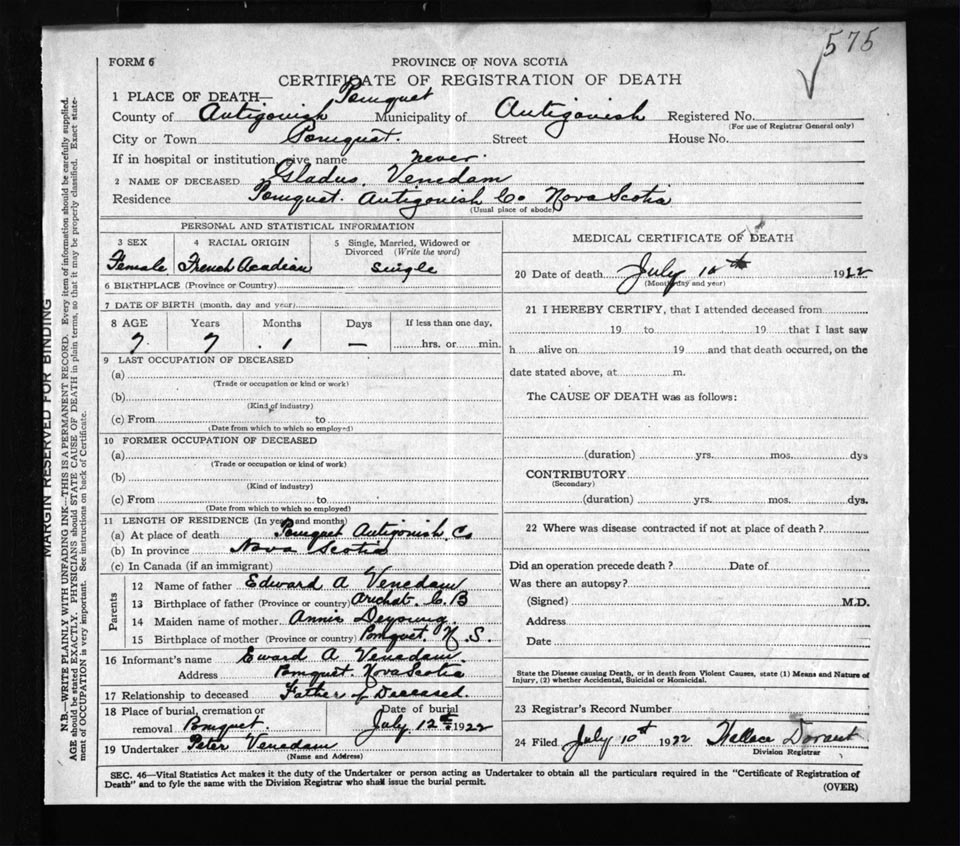 575
FORM 6
PROVINCE OF NOVA SCOTIA
CERTIFICATE OF REGISTRATION OF DEATH
1 PLACE OF DEATH— Pomquet
County of Antigonish Municipality of Antigonish Registered No.
(For use of Registrar General only)
City or Town Pomquet. Street House No.
If in hospital or institution, give name never.
2 NAME OF DECEASED Gladus. Venedam
Residence Pomquet. Antigonish Co Nova Scotia
(Usual place of abode)
PERSONAL AND STATISTICAL INFORMATION
3 SEX 4 RACIAL ORIGIN 5 Single, Married, Widowed or Divorced (Write the word)
Female French Acadian Single
6 BIRTHPLACE (Province or Country)
7 DATE OF BIRTH (month, day and year)
8 AGE Years Months Days If less than one day,
7. 7 . 1 — hrs. or min.
9 LAST OCCUPATION OF DECEASED
(a)
(Trade or occupation or kind or work)
(b)
(Kind of industry)
(c) From to
(Date from which to which so employed)
10 FORMER OCCUPATION OF DECEASED
(a)
(Trade or occupation or kind of work)
(b)
(Kind of industry)
(c) From to
(Date from which to which so employed)
11 LENGTH OF RESIDENCE (In years and months)
(a) At place of death Pomquet Antigonish Co
(b) In province Nova Scotia
(c) In Canada (if an immigrant)
Parents
12 Name of father Edward A Venedam
13 Birthplace of father (Province or country) Arichat. C. B
14 Maiden name of mother Annie Deyoung.
15 Birthplace of mother (Province or country) Pomquet. N. S.
16 Informant's name Eward A Venedam.
Address Pomquet. Nova Scotia
17 Relationship to deceased Father of Deceased.
18 Place of burial, cremation or removal Pomquet.
Date of burial July 12th 1922
19 Undertaker Peter Venedam
(Name and Address)
MEDICAL CERTIFICATE OF DEATH
20 Date of death July th 1922
(Month, day and year)
21 I HEREBY CERTIFY, that I attended deceased from
19 to 19 that I last saw
h alive on 19 and that death occurred, on the
date stated above, at m.
The CAUSE OF DEATH was as follows:
(duration) yrs. mos. dys
CONTRIBUTORY
(Secondary)
(duration) yrs. mos. dys.
22 Where was disease contracted if not at place of death?
Did an operation precede death? Date of
Was there an autopsy?
(Signed) M.D.
Address
Date
State the Disease causing Death, or in death from Violent Causes, state (1) Means and Nature of
Injury, (2) whether Accidental, Suicidal or Homicidal.
23 Registrar's Record Number
24 Filed July 10th 1922 Wallace
Division Registrar
SEC. 46—Vital Statistics Act makes it the duty of the Undertaker or person acting as Undertaker to obtain all the particulars required in the "Certificate of Registration of
Death" and to fyle the same with the Division Registrar who shall issue the burial permit.
(OVER)
MARGIN RESERVED FOR BINDING
N.B.—WRITE PLAINLY WITH UNFADING INK—THIS IS A PERMANENT RECORD. Every item of information should be carefully supplied.
AGE should be stated EXACTLY. PHYSICIANS should STATE CAUSE OF DEATH in plain terms, so that it may be properly classified. Exact state-
ment of OCCUPATION is very important. See instructions on back of Certificate.